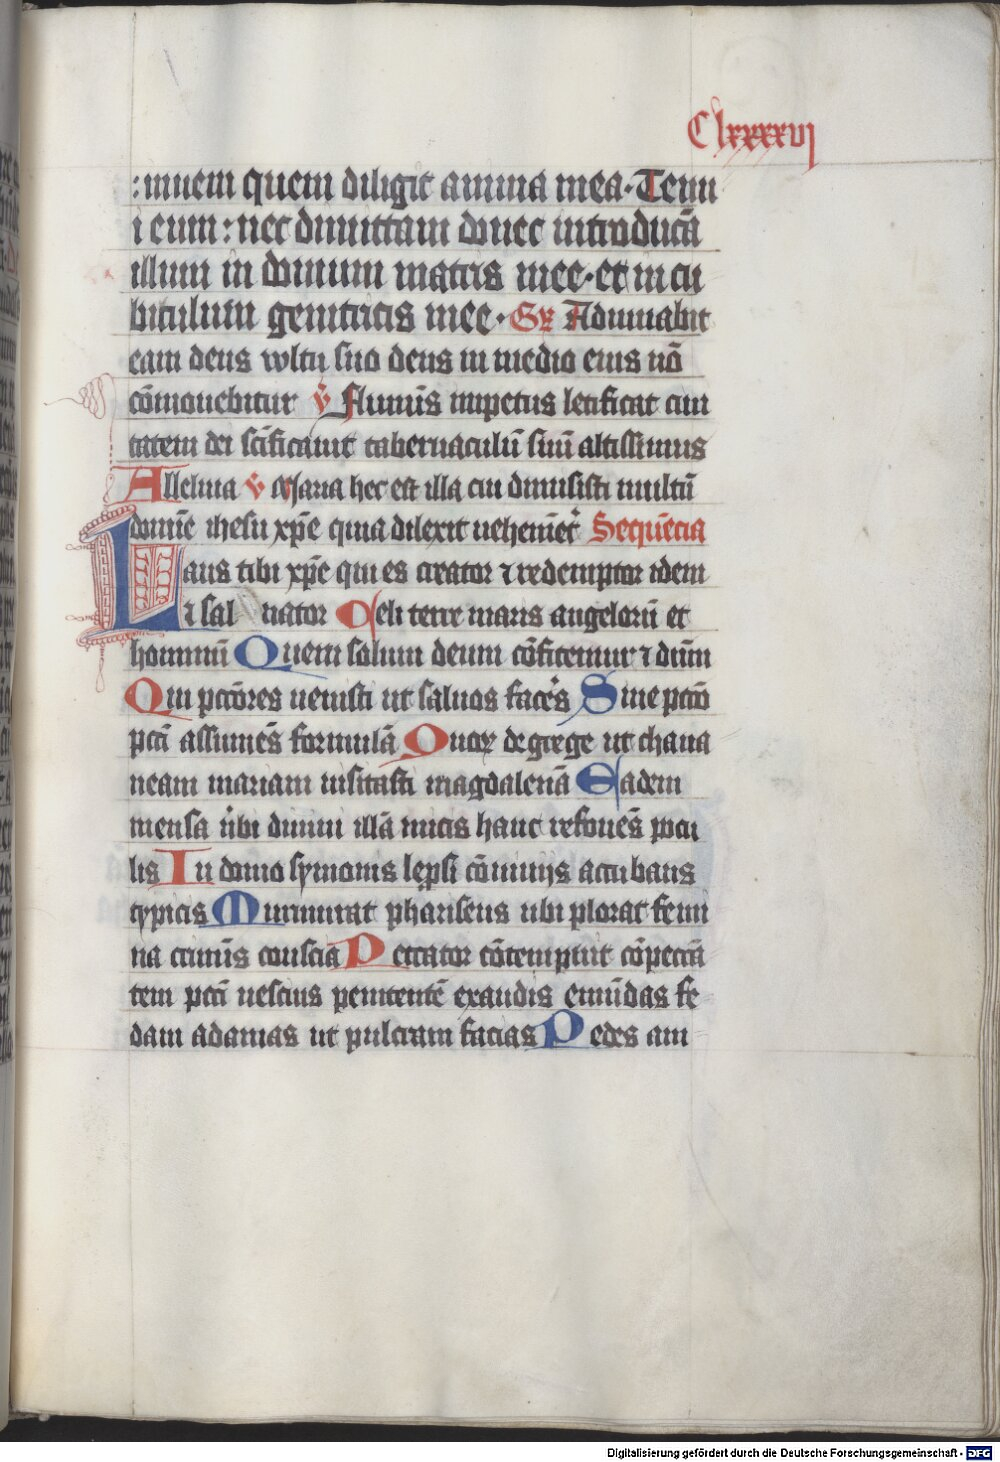 Clxxxxvj
:inuem quem diligit anima mea. Tenu
i eum: nec dimittam donec introducā
illum in domum matris mee. et in cu
biculum genitricis mee. Gͬ Adiuuabit
eam deus vvltu suo deus in medio eius nō
cōmouebitur v̄ Flumīs impetus letificat ciui
tatem dei scīficauit tabernaculū suū altissimus
Alleluia v̄ Maria hec est illa cui dimisisti multū
domīe ihesu xp̄e quia dilexit uehemēt᷑ Sequēcia
Laus tibi xp̄e qui es creator ⁊ redemptor idem
i sal uator Celi terre maris angelorū et
hominū Quem solum deum cōfitemur ⁊ dūm
Qui pctōres uenisti ut saluos facēs Sine pctō
pctī assumēs formulā Quoꝝ de grege ut chana
neam mariam uisitasti magdalenā Eadem
mensa ūbi diuini illā micis hanc refouēs pocu
lis In domo symonis lep̱si cōuiuijs accubans
typicis Murmurat phariseus ubi plorat femi
na crimīs conscia Peccator cōtempnit cōpeccā
tem pctī nescius penitentē exaudis emūdas fe
dam adamas ut pulcram facias Pedes am
Digitalisierung gefördert durch die Deutsche Forschungsgemeinschaft - DFG